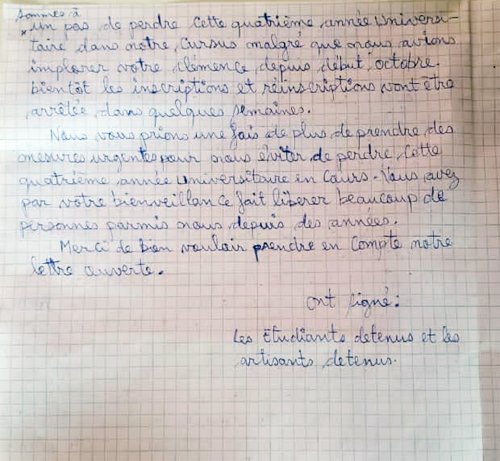 sommes à
un pas de perdre cette quatrième année universi-
taire dans notre cursus malgré que nous avions
implorer votre clémence depuis début octobre.
bientôt les inscriptions et réinscriptions vont être
arrêtée dans quelques semaines.
Nous vous prions une fois de plus de prendre des
mesures urgentes pour nous éviter de perdre cette
quatrième année universitaire en cours. Vous avez
par votre bienveillance fait libérer beaucoup de
personnes parmis nous depuis des années.
Merci de bien vouloir prendre en compte notre
lettre ouverte.
ont signé :
Les Etudiants detenus et les
artisants detenus.